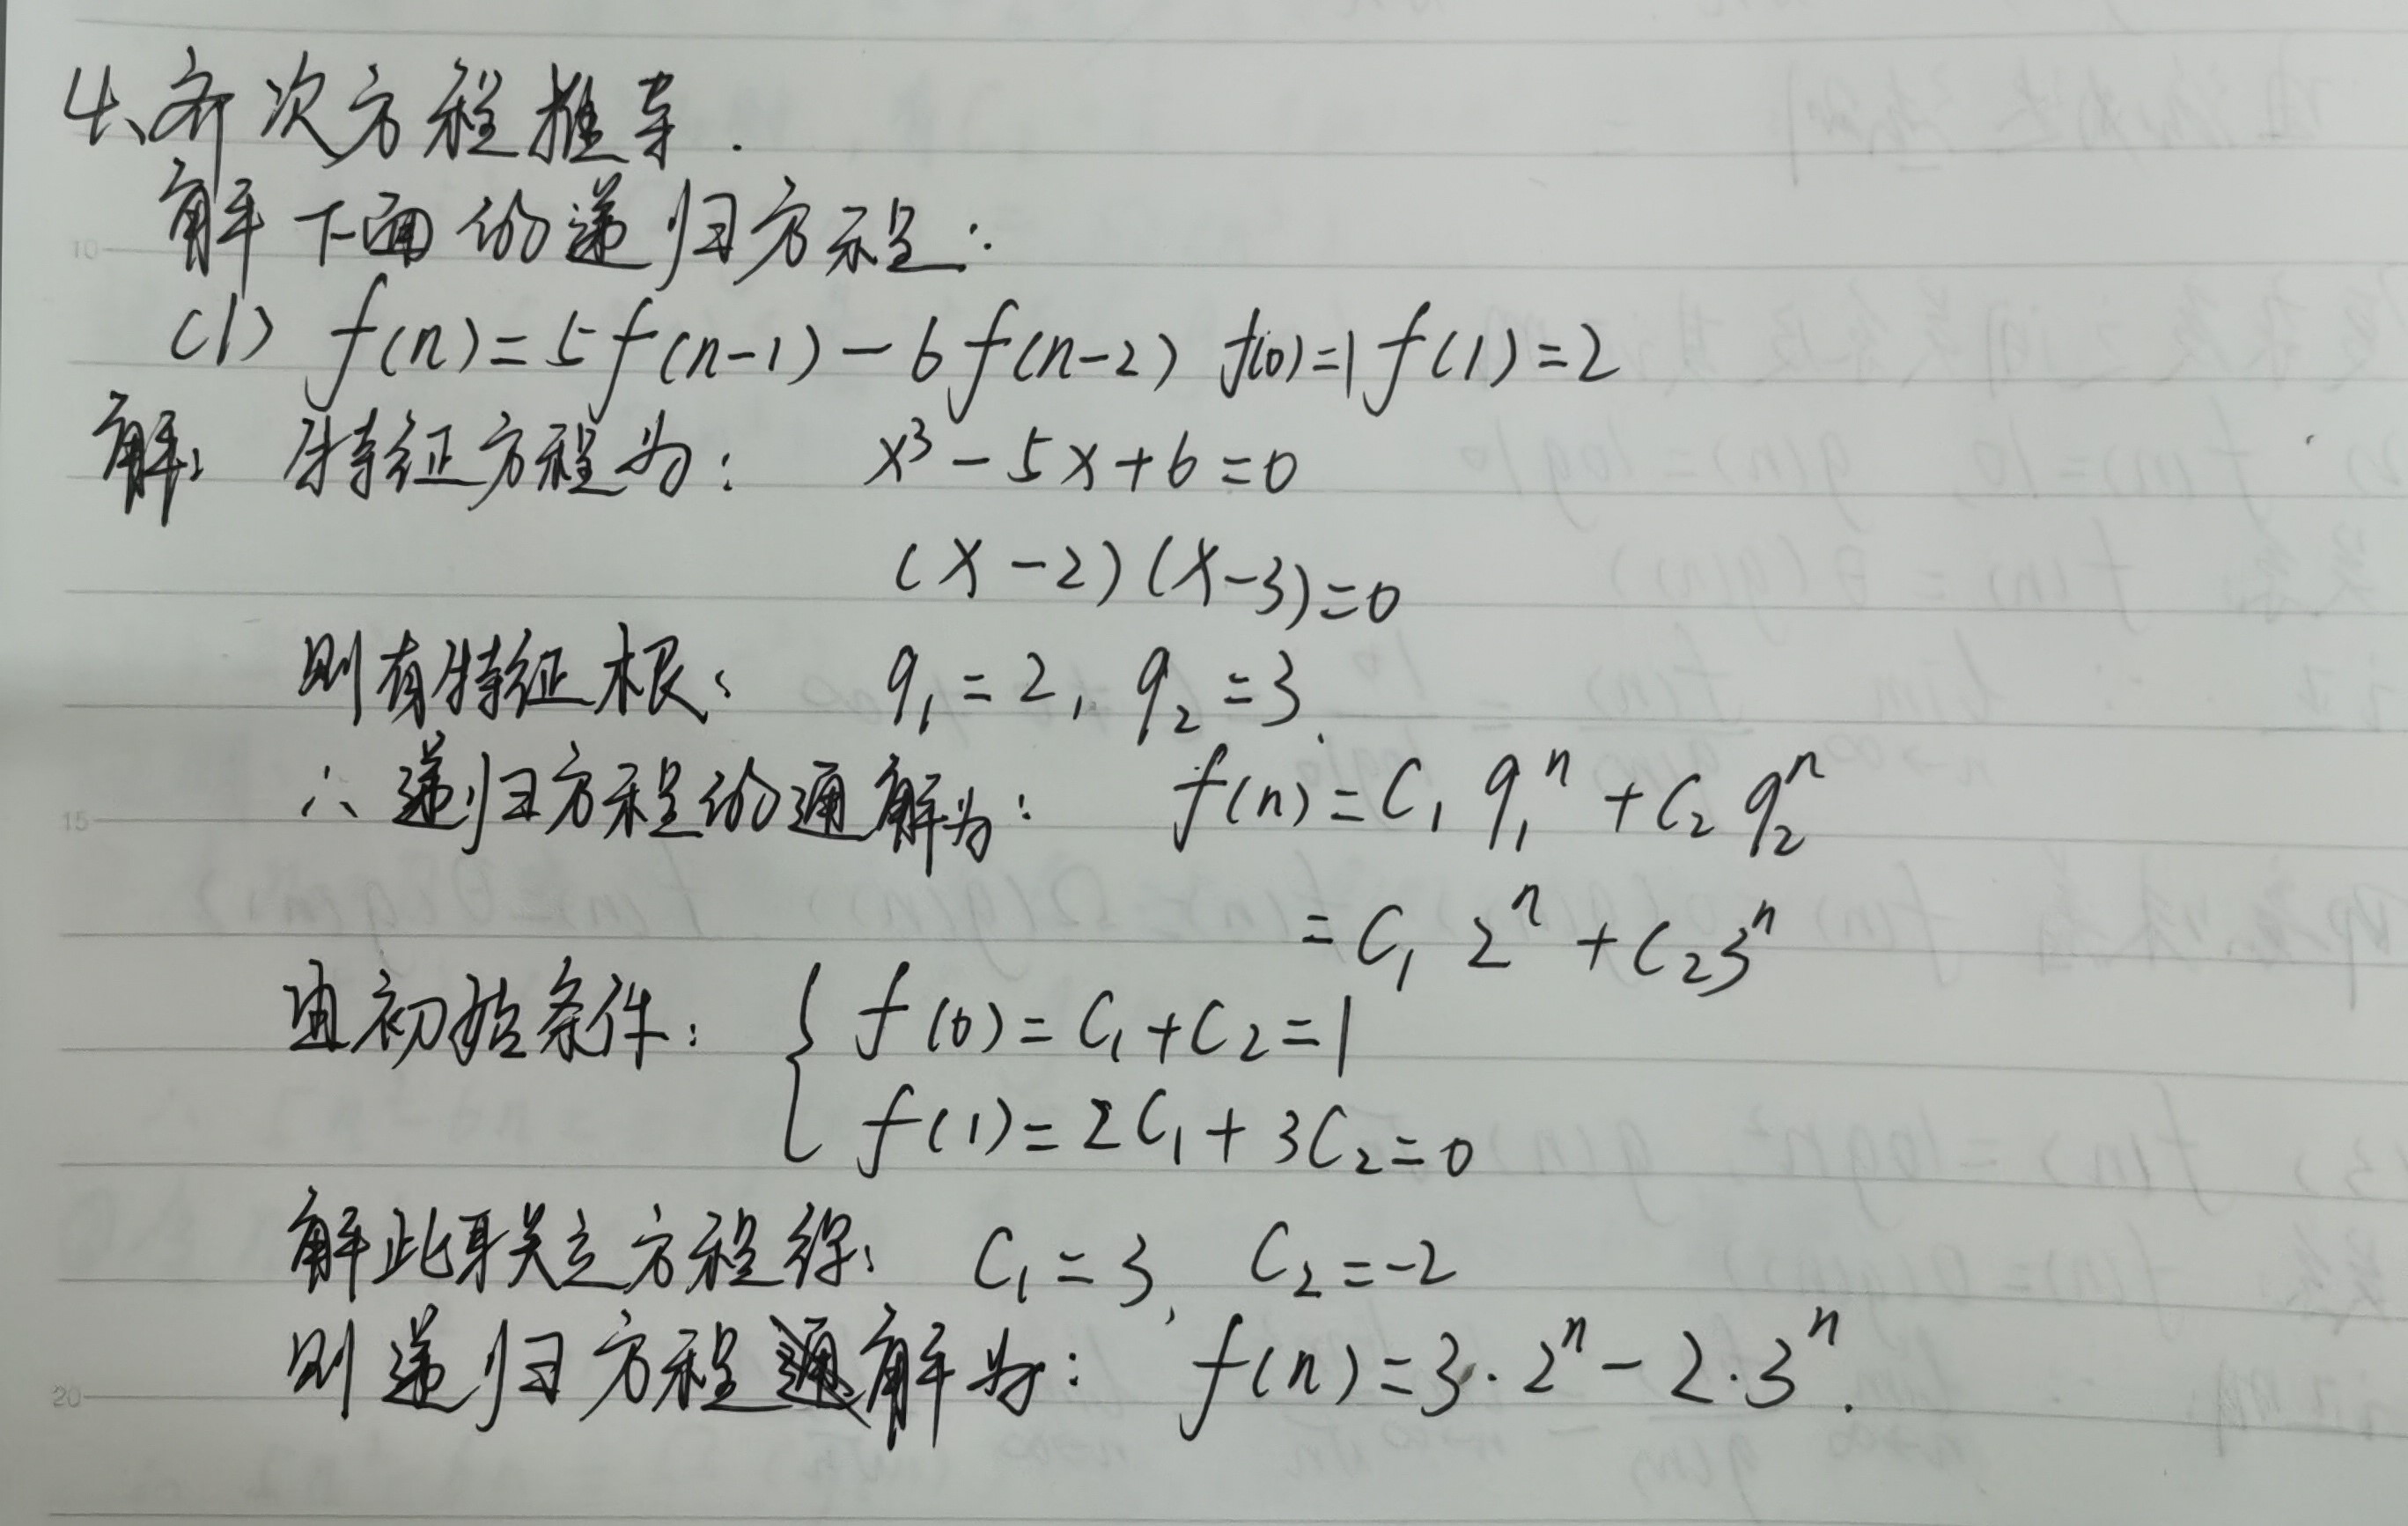 4、齐次方程推导.
解下面的递归方程:
(1) f(n)=5f(n-1)-6f(n-2) f(0)=1 f(1)=2
解: 特征方程为: x³-5x+6=0
(x-2)(x-3)=0
则有特征根: q₁=2, q₂=3.
∴递归方程的通解为: f(n)=C₁q₁ⁿ+C₂q₂ⁿ
=C₁2ⁿ+C₂3ⁿ
由初始条件: { f(0)=C₁+C₂=1
f(1)=2C₁+3C₂=0
解此联立方程得: C₁=3, C₂=-2
则递归方程解为: f(n)=3·2ⁿ-2·3ⁿ.
10
15
20